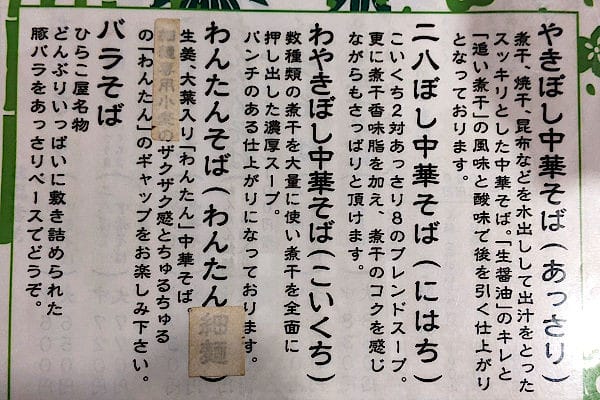 やきぼし中華そば(あっさり)
煮干、焼干、昆布などを水出しして出汁をとった
スッキリとした中華そば。「生醤油」のキレと
「追い煮干」の風味と酸味で後を引く仕上がり
となっております。
二八ぼし中華そば(にはち)
こいくち2対あっさり8のブレンドスープ。
更に煮干香味脂を加え、煮干のコクを感じ
ながらもさっぱりと頂けます。
わやきぼし中華そば(こいくち)
数種類の煮干を大量に使い煮干を全面に
押し出した濃厚スープ。
パンチのある仕上がりになっております。
わんたんそば(わんたん)
生姜、大葉入り「わんたん」中華そば。
のザクザク感とちゅるちゅる
の「わんたん」のギャップをお楽しみ下さい。
バラそば
ひらこ屋名物
どんぶりいっぱいに敷き詰められた
豚バラをあっさりベースでどうぞ。